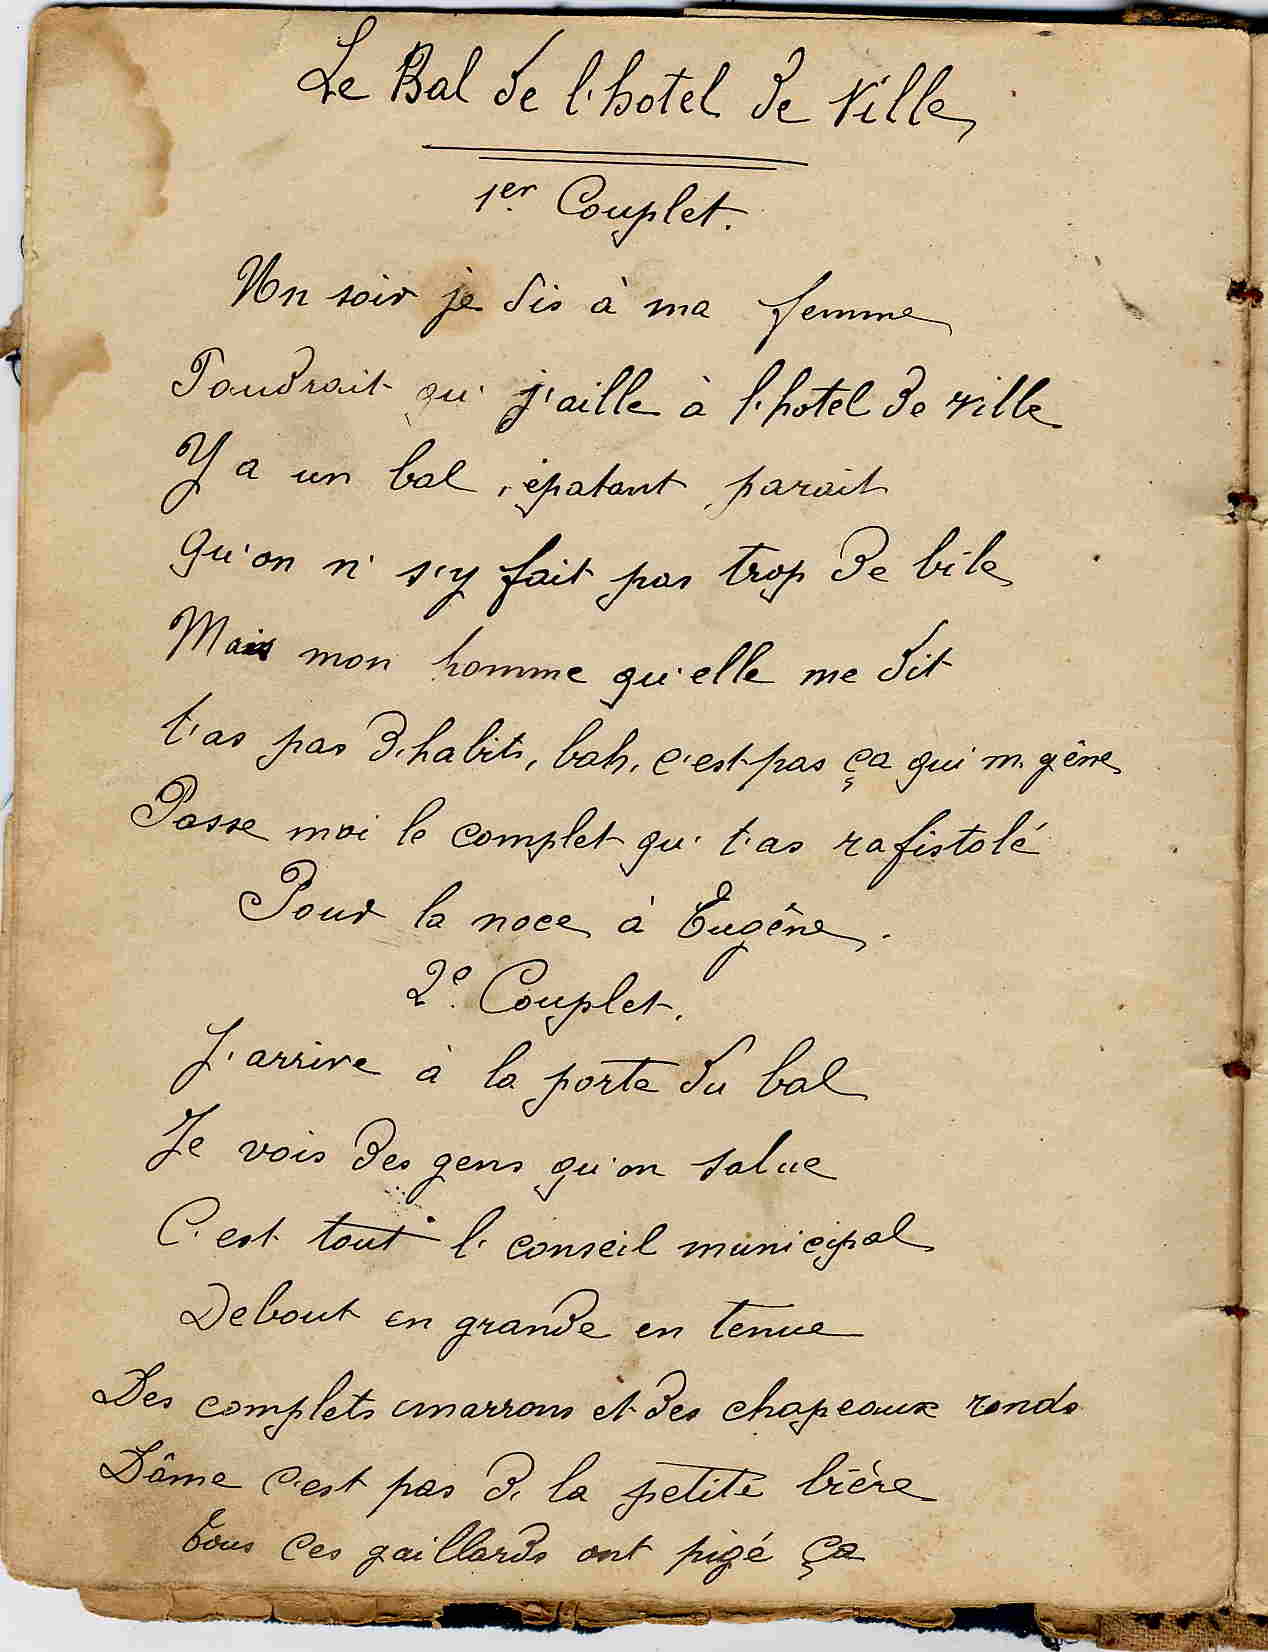 Le Bal de l'hotel de Ville
1er Couplet.
Un soir je dis à ma femme
Faudrait qu' j'aille à l'hotel de ville
Y a un bal, épatant parait
Qu'on n' s'y fait pas trop de bile
Mais mon homme qu'elle me dit
t'as pas d'habits, bah, c'est pas ça qui m' gêne
Passe moi le complet qu' t'as rafistolé
Pour la noce à Eugêne.
2e Couplet.
J'arrive à la porte du bal
Je vois des gens qu'on salue
C'est tout l' conseil municipal
Debout en grande en tenue
Des complets marrons et des chapeaux ronds
Dâme c'est pas d' la petite bière
Tous ces gaillards ont pigé ça